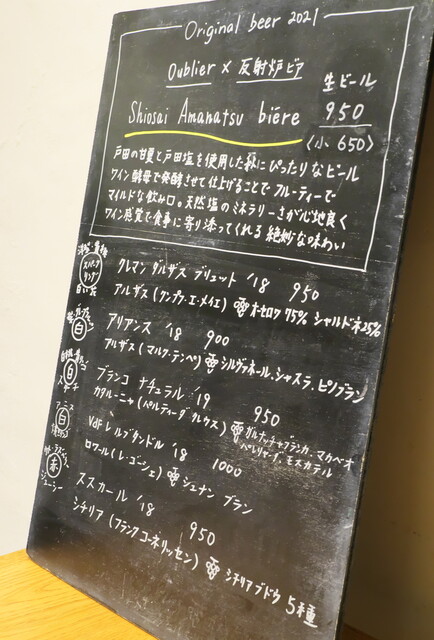 Original beer 2021
Oublier × 反射炉ビア
生ビール
Shiosai Amanatsu bière
950
〈小 650〉
戸田の甘夏と戸田塩を使用した萩にぴったりなビール
ワイン酵母で発酵させて仕上げることでフルーティーで
マイルドな飲み口。天然塩のミネラリーさが心地良く
ワイン感覚で食事に寄り添ってくれる絶妙な味わい
スパークリング
白い花
クレマン ダルザス ブリュット '18 950
アルザス (クンプフ・エ・メイエ) オーセロワ 75% シャルドネ25%
白
アリアンス '18 900
アルザス (マルク・テンペ) シルヴァネール、シャスラ、ピノブラン
白
ブランコ ナチュラル '19 950
カタルーニャ (ペルティーダ クレウス) ガルナッチャブランカ、マカベオ
パレリャーダ、モスカテル
アニス
白
VdF レ ルブタンドル '18 1000
ロワール (レ・ゴーシェ) シュナン ブラン
赤
ジューシー
ススカール '18 950
シチリア (フランク コーネリッセン) シチリアブドウ 5種